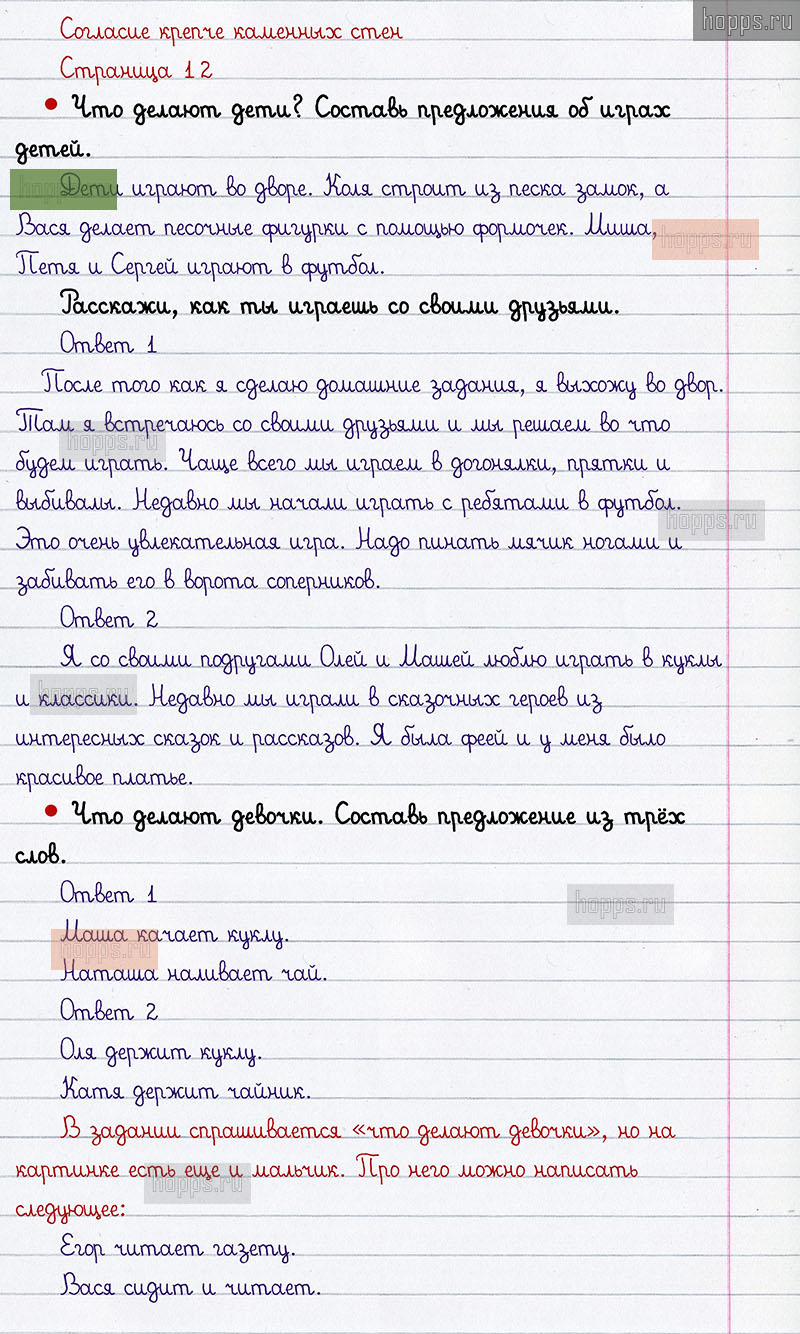 hopps.ru
Согласие крепче каменных стен
Страница 12
• Что делают дети? Составь предложения об играх
детей.
Дети играют во дворе. Коля строит из песка замок, а
Вася делает песочные фигурки с помощью формочек. Миша,
hopps.ru
Петя и Сергей играют в футбол.
Расскажи, как ты играешь со своими друзьями.
Ответ 1
После того как я сделаю домашние задания, я выхожу во двор.
Там я встречаюсь со своими друзьями и мы решаем во что
hopps.ru
будем играть. Чаще всего мы играем в догонялки, прятки и
выбивалы. Недавно мы начали играть с ребятами в футбол.
hopps.ru
Это очень увлекательная игра. Надо пинать мячик ногами и
забивать его в ворота соперников.
Ответ 2
Я со своими подругами Олей и Машей люблю играть в куклы
и классики. Недавно мы играли в сказочных героев из
hopps.ru
интересных сказок и рассказов. Я была феей и у меня было
красивое платье.
• Что делают девочки. Составь предложение из трёх
слов.
Ответ 1
hopps.ru
Маша качает куклу.
hopps.ru
Наташа наливает чай.
Ответ 2
Оля держит куклу.
Катя держит чайник.
В задании спрашивается «что делают девочки», но на
картинке есть еще и мальчик. Про него можно написать
hopps.ru
следующее:
Егор читает газету.
Вася сидит и читает.